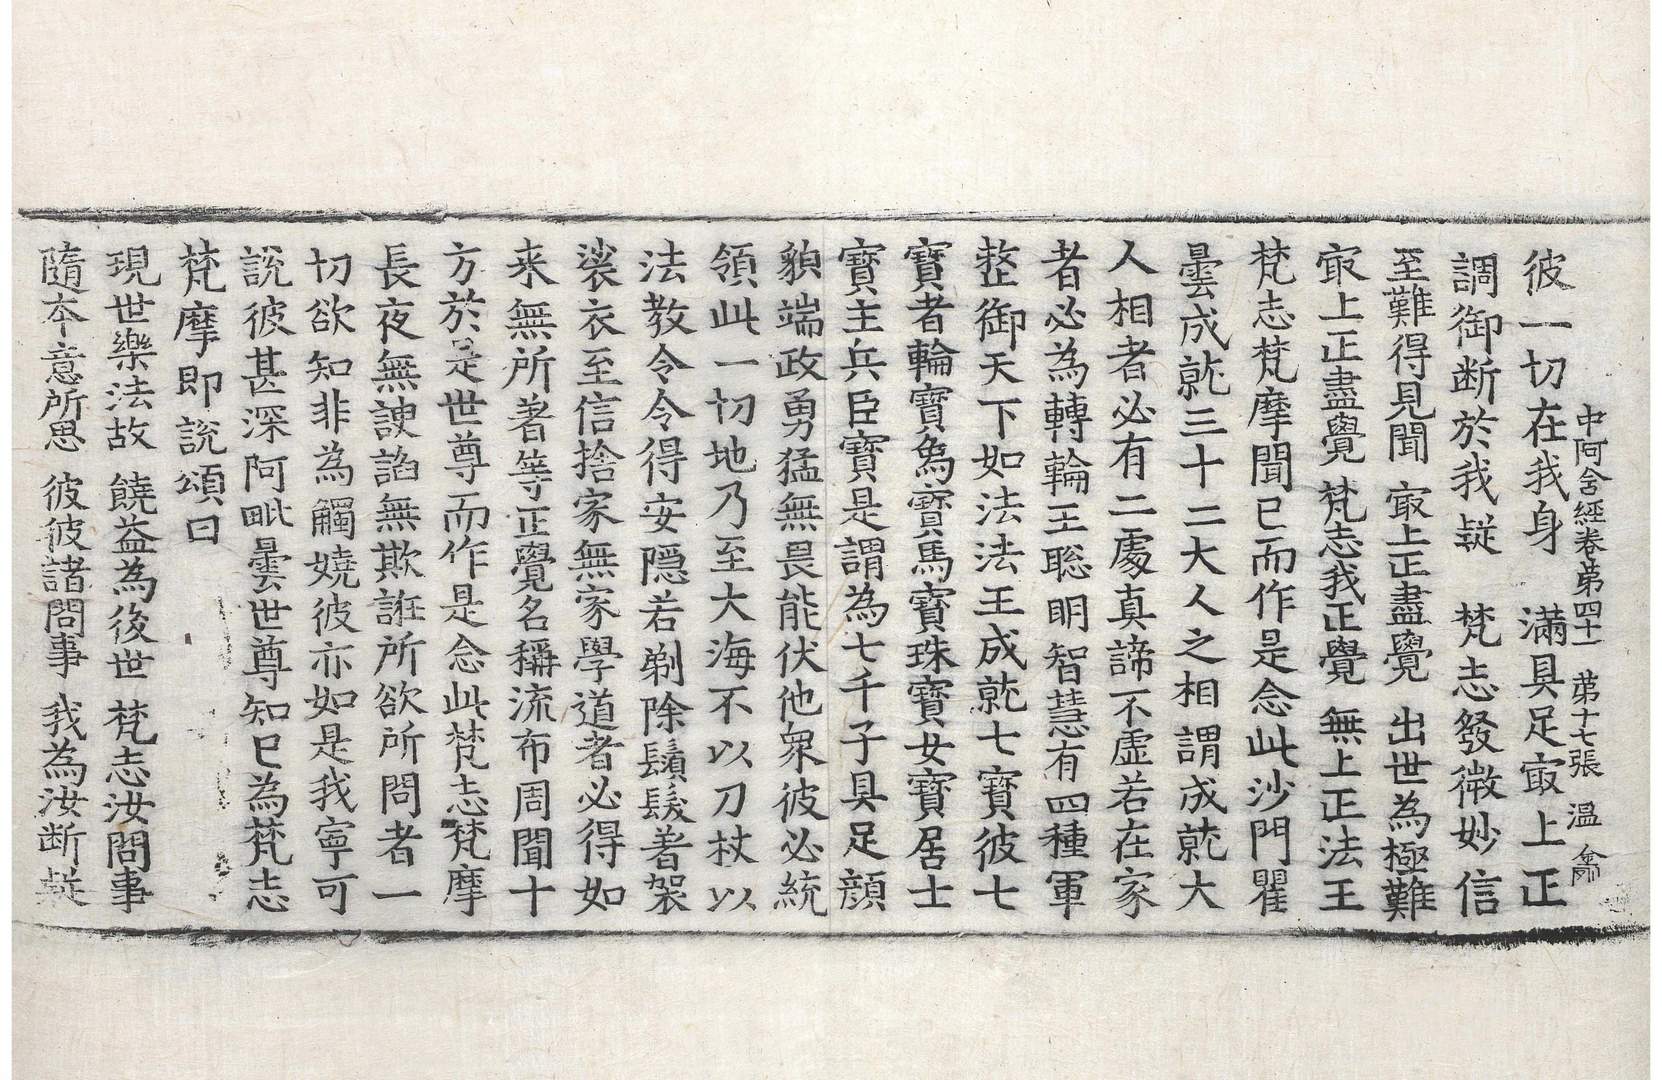 中阿含經卷第四十一 第十七張 溫 禽
彼一切在我身 滿具足㝡上正
調御断於我疑 梵志發微妙信
至難得見聞 㝡上正盡覺 出世為極難
㝡上正盡覺 梵志我正覺 無上正法王
梵志梵摩聞已而作是念此沙門瞿
曇成就三十二大人之相謂成就大
人相者必有二處真諦不虛若在家
者必為轉輪王聡明智慧有四種軍
整御天下如法法王成就七寶彼七
寶者輪寶象寶馬寶珠寶女寶居士
寶主兵臣寶是謂為七千子具足顔
貌端政勇猛無畏能伏他衆彼必統
領此一切地乃至大海不以刀杖以
法教令令得安隠若剃除鬚髮著袈
裟衣至信捨家無家學道者必得如
来無所著等正覺名稱流布周聞十
方於是世尊而作是念此梵志梵摩
長夜無諛諂無欺誑所欲所問者一
切欲知非為觸嬈彼亦如是我寧可
說彼甚深阿毗曇世尊知已為梵志
梵摩即說頌曰
現世樂法故 饒益為後世 梵志汝問事
隨本意所思 彼彼諸問事 我為汝断疑